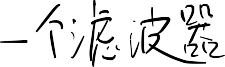 一个滤波器